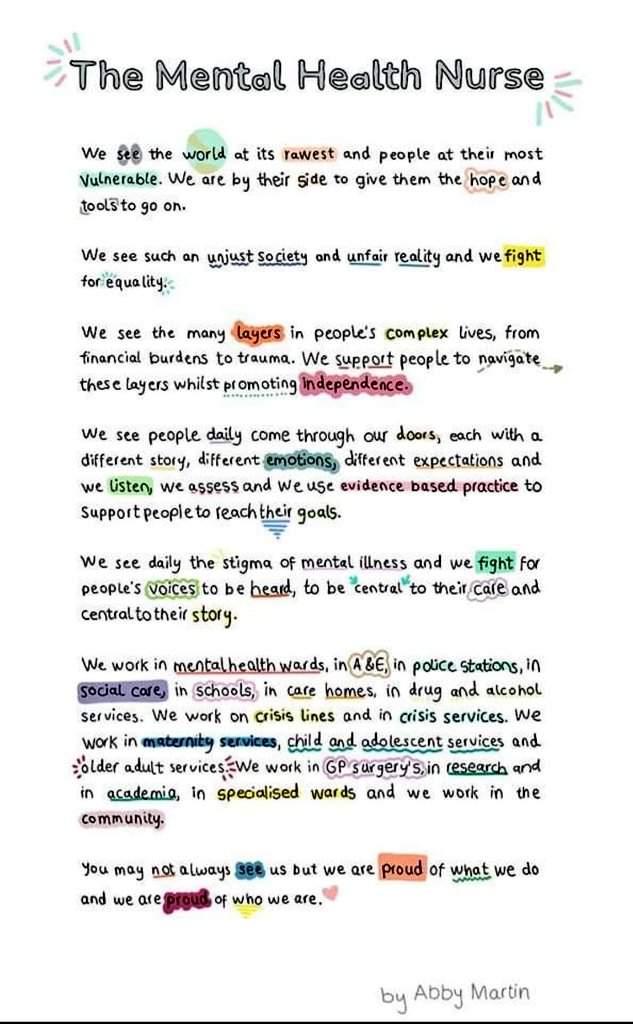 The Mental Health Nurse
We see the world at its rawest and people at their most
vulnerable. We are by their side to give them the hope and
tools to go on.
We see such an unjust society and unfair reality and we fight
for equality.
We see the many layers in people's complex lives, from
financial burdens to trauma. We support people to navigate
these layers whilst promoting independence.
We see people daily come through our doors, each with a
different story, different emotions, different expectations and
we listen, we assess and we use evidence based practice to
support people to reach their goals.
We see daily the stigma of mental illness and we fight for
people's voices to be heard, to be central to their care and
central to their story.
We work in mental health wards, in A&E, in police stations, in
social care, in schools, in care homes, in drug and alcohol
services. We work on crisis lines and in crisis services. We
work in maternity services, child and adolescent services and
older adult services. We work in GP surgery's, in research and
in academia, in specialised wards and we work in the
community.
You may not always see us but we are proud of what we do
and we are proud of who we are.
by Abby Martin